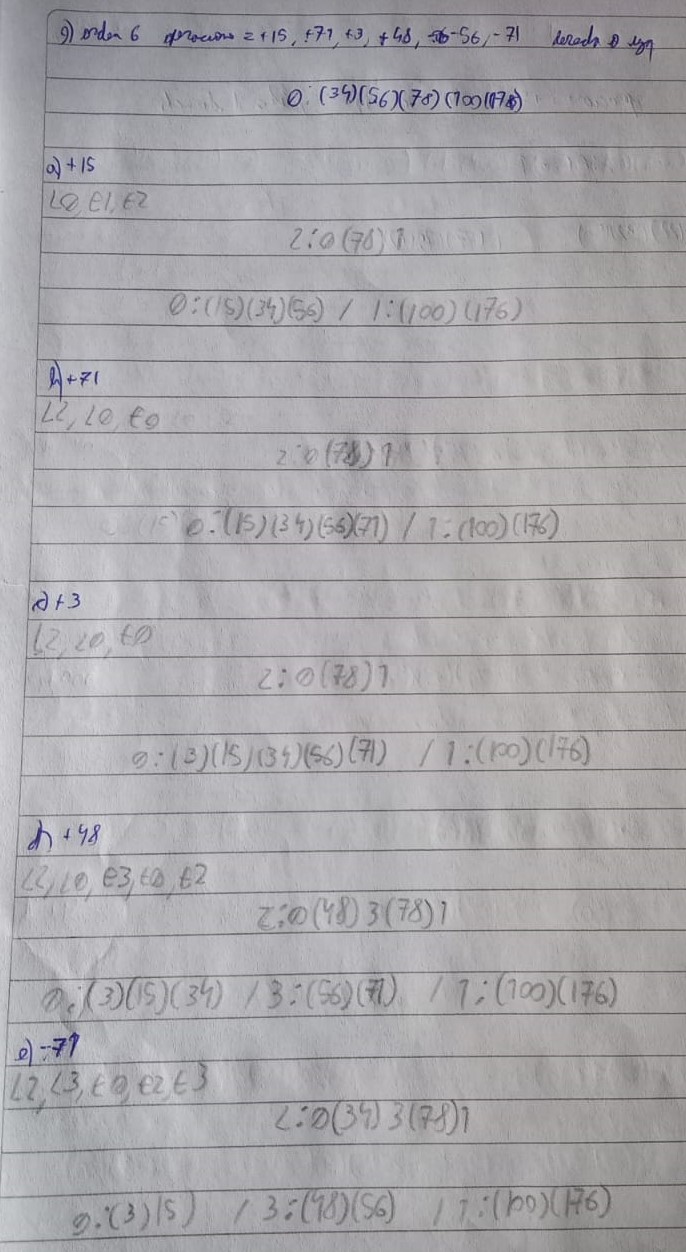 g) orden 6 operaciones = +15, +71, +3, +48, -56, -71 derecha o izq
0: (34)(56)(78)(100)(176)
a) +15
L0, E1, E2
2: 0 (78) 1
0: (15)(34)(56) / 1: (100)(176)
b) +71
L2, L0, E0
2: 0 (78) 1
0: (15)(34)(56)(71) / 1: (100)(176)
c) +3
L2, L0, E0
2: 0 (78) 1
0: (3)(15)(34)(56)(71) / 1: (100)(176)
d) +48
L2, L0, E3, E0, E2
2: 0 (48) 3 (78) 1
0: (3)(15)(34) / 3: (56)(71) / 1: (100)(176)
e) -71
L2, L3, E0, E2, E3
2: 0 (34) 3 (78) 1
0: (3)(15) / 3: (48)(56) / 1: (100)(176)